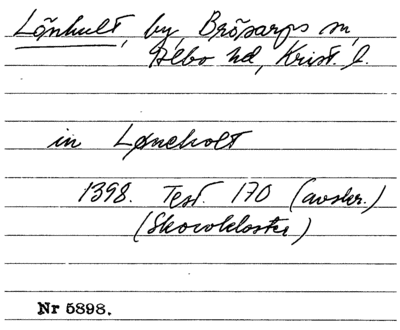 Lönhult, by, Brösarps sn,
Albo hd, Krist. l.
in Løneholt
1398. Test. 170 (avskr.)
(Skovkloster)
Nr 5898.